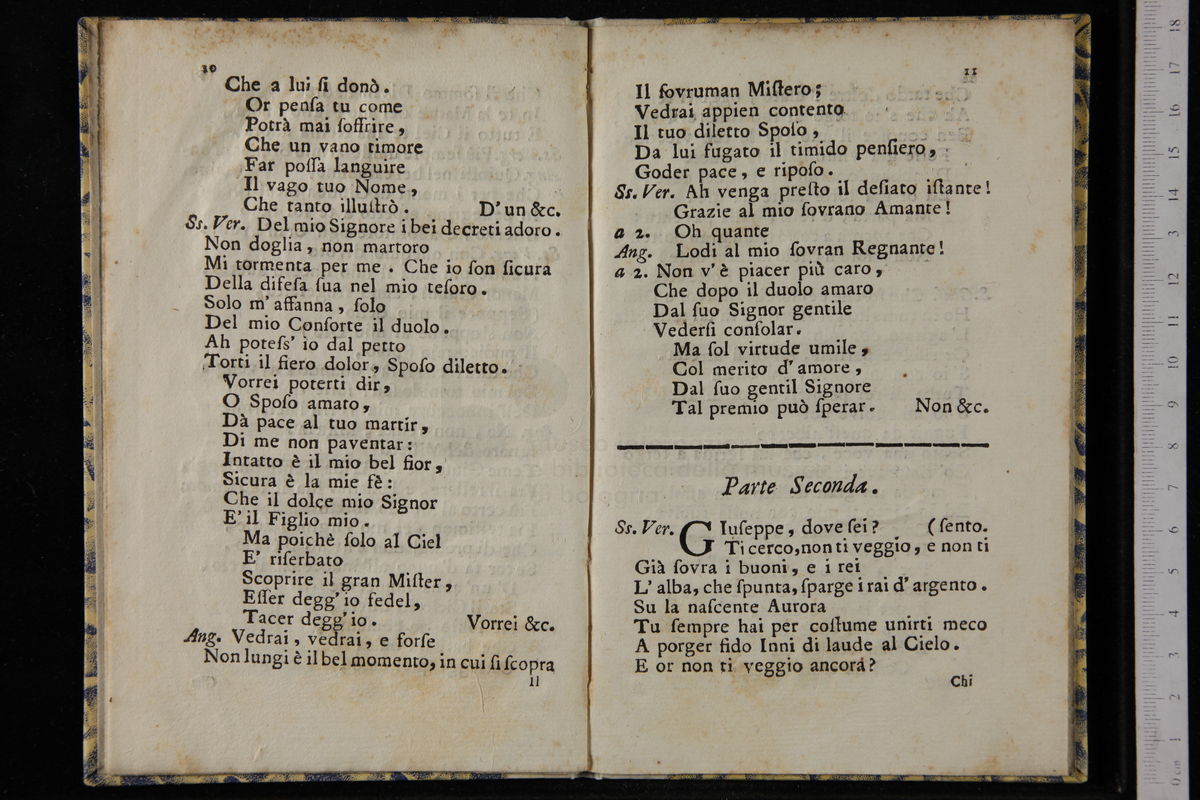 10
Che a lui ſi donò.
Or penſa tu come
Potrà mai ſoffrire,
Che un vano timore
Far poſſa languire
Il vago tuo Nome,
Che tanto illuſtrò. D'un &c.
Ss. Ver. Del mio Signore i bei decreti adoro.
Non doglia, non martoro
Mi tormenta per me. Che io ſon ſicura
Della difeſa ſua nel mio teſoro.
Solo m'affanna, ſolo
Del mio Conſorte il duolo.
Ah poteſs' io dal petto
Torti il fiero dolor, Spoſo diletto.
Vorrei poterti dir,
O Spoſo amato,
Dà pace al tuo martir,
Di me non paventar:
Intatto è il mio bel fior,
Sicura è la mie fè:
Che il dolce mio Signor
E' il Figlio mio.
Ma poichè ſolo al Ciel
E' riſerbato
Scoprire il gran Miſter,
Eſſer degg' io fedel,
Tacer degg' io. Vorrei &c.
Ang. Vedrai, vedrai, e forſe
Non lungi è il bel momento, in cui ſi ſcopra
Il
11
Il ſovruman Miſtero;
Vedrai appien contento
Il tuo diletto Spoſo,
Da lui fugato il timido penſiero,
Goder pace, e ripoſo.
Ss. Ver. Ah venga preſto il deſiato iſtante!
Grazie al mio ſovrano Amante!
a 2. Oh quante
Ang. Lodi al mio ſovran Regnante!
a 2. Non v'è piacer più caro,
Che dopo il duolo amaro
Dal ſuo Signor gentile
Vederſi conſolar.
Ma ſol virtude umile,
Col merito d'amore,
Dal ſuo gentil Signore
Tal premio può ſperar. Non &c.
Parte Seconda.
Ss. Ver. GIuſeppe, dove ſei? (ſento.
Ti cerco, non ti veggio, e non ti
Già ſovra i buoni, e i rei
L'alba, che ſpunta, ſparge i rai d'argento.
Su la naſcente Aurora
Tu ſempre hai per coſtume unirti meco
A porger fido Inni di laude al Cielo.
E or non ti veggio ancora?
Chi